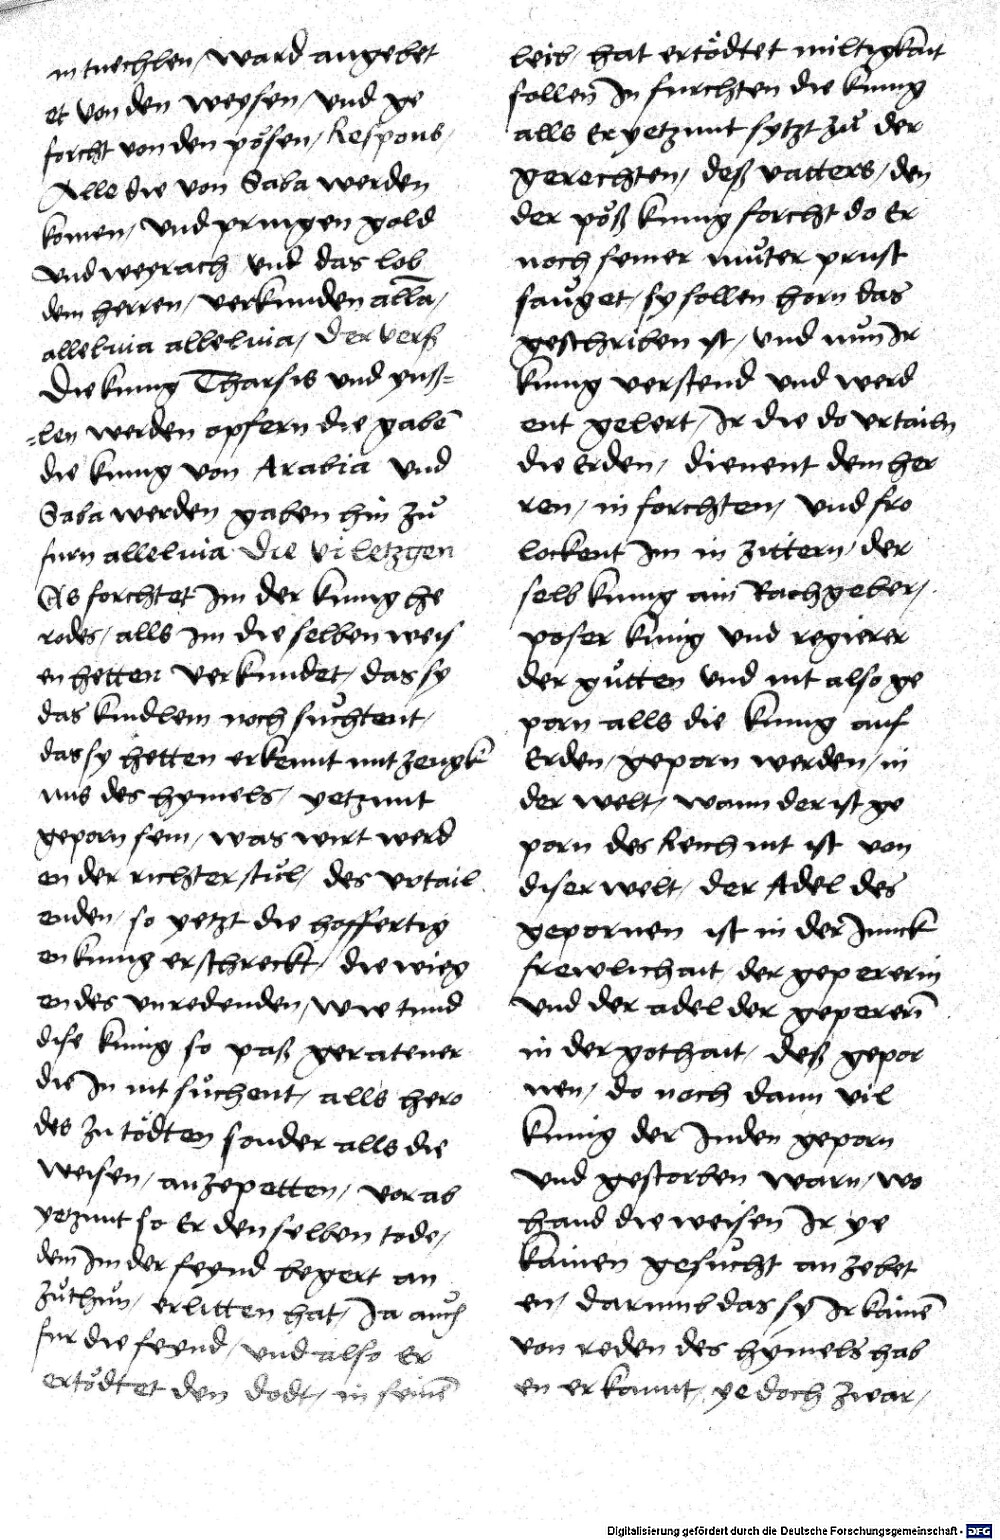 in tuechlen / ward angebet
et von den weysen / und ge
forcht von den pösen / Respons /
Alle die von Saba werden
komen / und pringen gold
und weyrach und das lob
dem herren / verkunden alla /
alleluia alleluia / Der vers
Die kunig Tharsis und ynß=
=len werden opfern die gabē
die kunig von Arabia und
Saba werden gaben hin zů
furn alleluia Die vi letzgen
As forchtet Im der kunig he
rodes / alls Im die selben weis
en hetten verkundet / das sy
das kindlein noch sůchtent /
das sy hetten erkennt mit zeugk
nus des hymels / yetzunt
geporn sein / was wirt werd
en der richter stůl / des urtail
enden / so yetzt die hoffertig
en kunig erschreckt / die wieg
en des unredenden / wie tund
dise kunig so paß geratener
die In nit sůchent / alls hero
des zu tödten sonder alls die
weisen / anzepetten / vor ab
yetzunt so Er den selben tode /
dem Im der feynd begert an
zůthůn / erlitten hat / Ja auch
fur die feynd / und also Er
ertödtet den dodt / in seinē
leib / hat ertödtet miltigkait
sollen In furchten die kunig
alls Er yetzunt sytzt zů der
gerechten / deß vatters / den
der pöß kunig forcht do Er
noch seiner můter prust
sauget / sy sollen horn das
geschriben ist / und nun Ir
kunig verstend und werd
ent gelert / Ir die do urtailn
die Erden / dienent dem her
ren / in forchten / und fro
lockent Im in zittern / der
selb kunig ain Rachgeber /
poser kunig und regierer
der gůtten und nit also ge
porn alls die kunig auf
Erden / geporn werden / in
der welt / wann der ist ge
porn des Reich nit ist von
diser welt / der Adel des
gepornen ist in der Junck
frewlichait / der gepererin
und der adel der gepererī
in der gothait / deß gepor
nen / do noch dann vil
kunig der Juden geporn
und gestorben warn / wo
hand die weisen Ir ye
kainen gesůcht an zebet
en / darumb das sy Ir kainē
von reden des hymels hab
en erkannt / ye doch zwar /
Digitalisierung gefördert durch die Deutsche Forschungsgemeinschaft - DFG